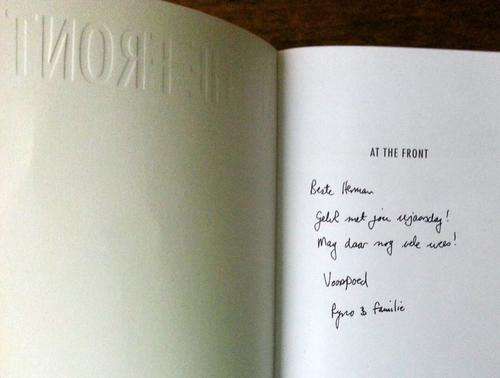 THE FRONT
AT THE FRONT
Beste Herman
Geluk met jou verjaarsdag!
Mag daar nog vele wees!
Voorspoed
Ryno & Familie